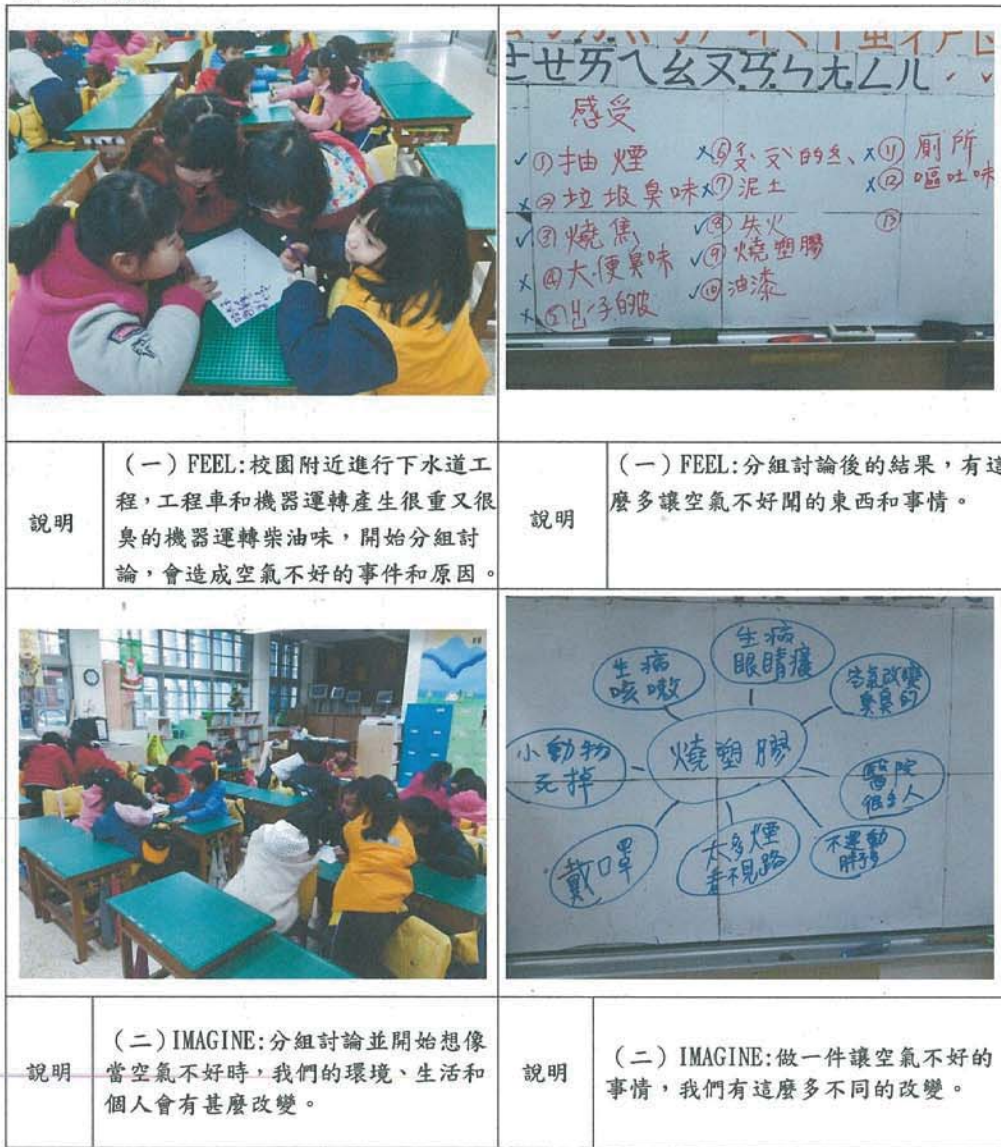 ㄜㄝㄞㄟㄠㄡㄢㄣㄤㄥㄦ
感受
✓①抽煙
x②垃圾臭味
✓③燒焦
x④大便臭味
x⑤
x⑦泥土
✓⑧失火
✓⑨燒塑膠
✓⑩油漆
x⑪廁所
x⑫嘔吐味
⑬
說明
(一)FEEL:校園附近進行下水道工
程,工程車和機器運轉產生很重又很
臭的機器運轉柴油味,開始分組討
論,會造成空氣不好的事件和原因。
說明
(一)FEEL:分組討論後的結果,有這
麼多讓空氣不好聞的東西和事情。
生病
咳嗽
生病
眼睛癢
空氣改變
臭臭的
小動物
死掉
燒塑膠
醫院
很多人
戴口罩
太多煙
看不見路
不運動
說明
(二)IMAGINE:分組討論並開始想像
當空氣不好時,我們的環境、生活和
個人會有甚麼改變。
說明
(二)IMAGINE:做一件讓空氣不好的
事情,我們有這麼多不同的改變。